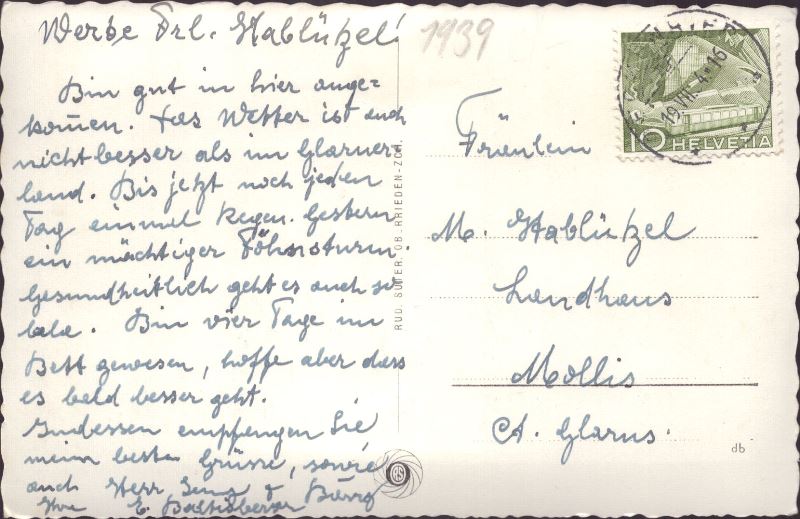 Werbe Frl. Hablützel!
Bin gut in hier ange=
kommen. Das Wetter ist auch
nicht besser als im Glarner=
land. Bis jetzt noch jeden
Tag einmal Regen. Gestern
ein mächtiger Föhnsturm.
Gesundheitlich geht es auch so
lala. Bin vier Tage im
Bett gewesen, hoffe aber dass
es bald besser geht.
Indessen empfangen Sie
meine besten Grüsse, sowie
auch Herr
Ihre E.
RUD. SUTER, OB. RRIEDEN-ZCH.
1939
19.VII.4 16
10 HELVETIA
Fräulein
M. Hablützel
Landhaus
Mollis
Ct. Glarus.
db